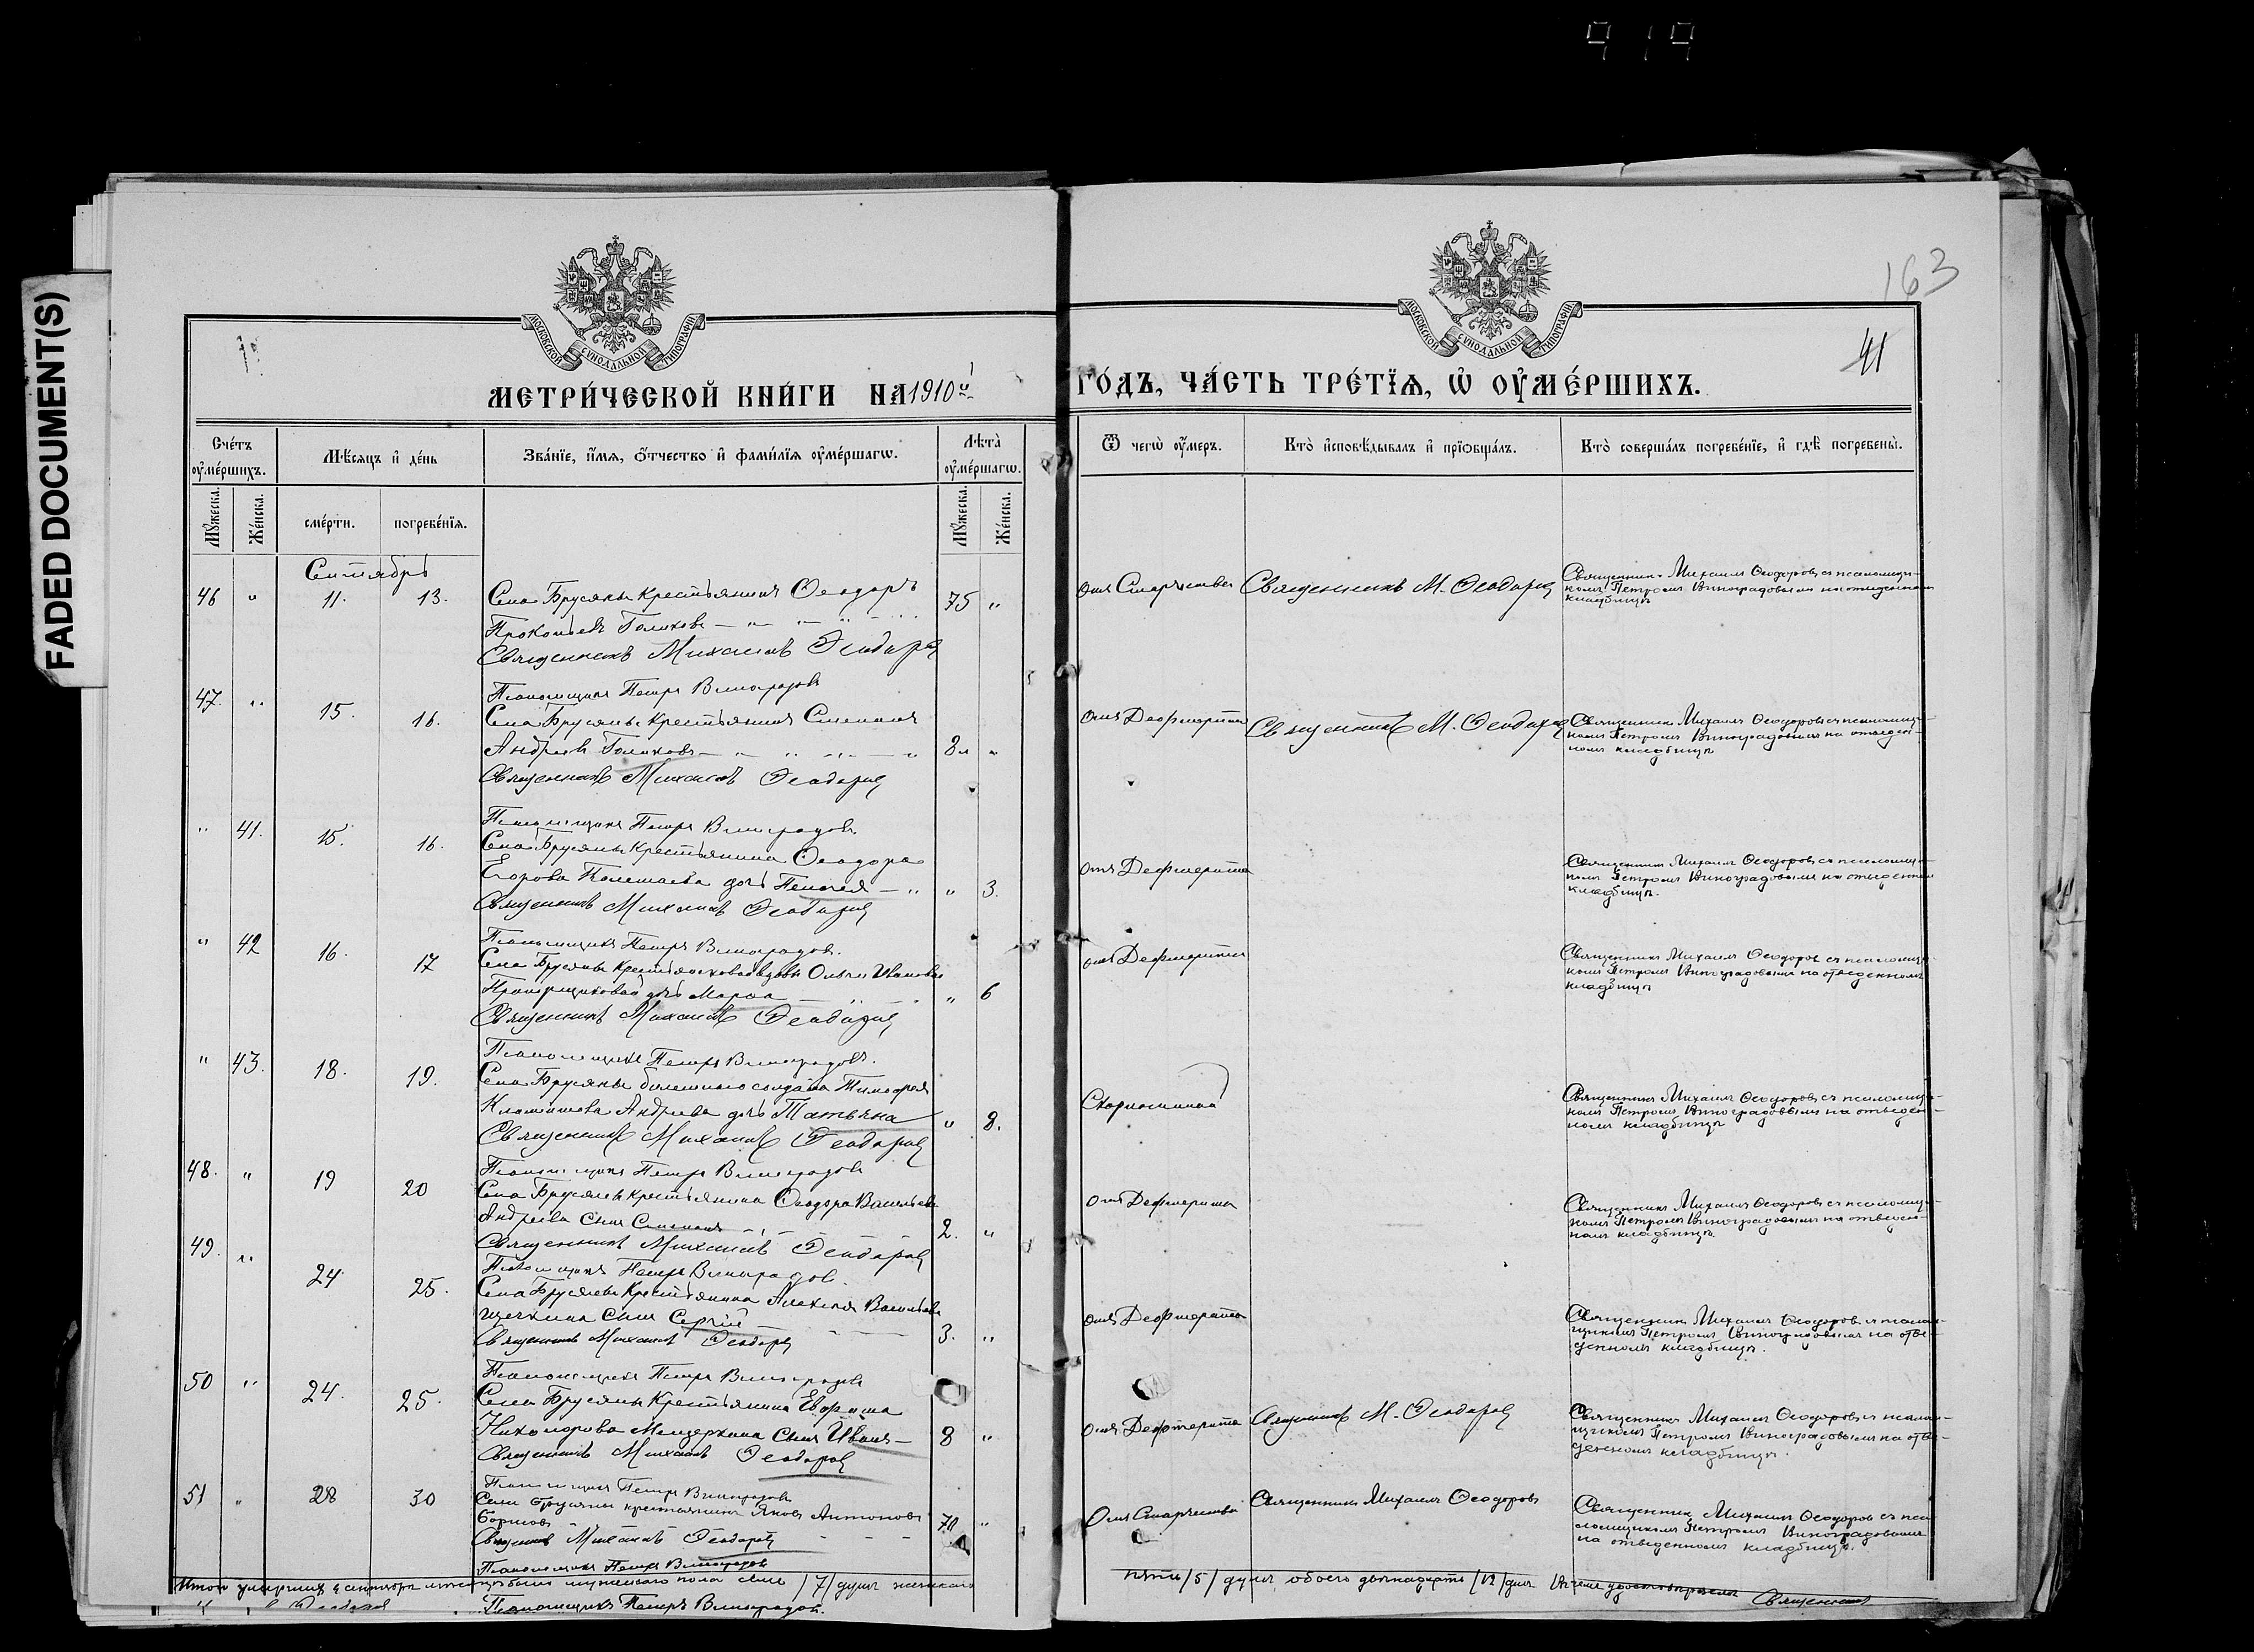 919
FADED DOCUMENT(S)
163
41
МОСКОВСКОЙ СѴНОДАЛЬНОЙ ТИПОГРАФІИ
МОСКОВСКОЙ СѴНОДАЛЬНОЙ ТИПОГРАФІИ
МЕТРИ́ЧЕСКОЙ КНИ́ГИ НА 1910й
ГО́ДЪ, ЧА́СТЬ ТРЕ́ТЇѦ, Ѡ҆ ОУ҆МЕ́РШИХЪ.
Сче́тъ оу҆ме́ршихъ.
Мѣ́сѧцъ и҆ де́нь
Зва́нїе, и҆́мѧ, ѻ҆́тчество и҆ фами́лїѧ оу҆ме́ршагѡ.
Лѣ́та оу҆ме́ршагѡ.
Ѿ чегѡ̀ оу҆́меръ.
Кто̀ и҆сповѣ́дывалъ и҆ прїѻбща́лъ.
Кто̀ соверша́лъ погребе́нїе, и҆ гдѣ̀ погребены̀.
Мꙋ́жеска.
Же́нска.
сме́рти.
погребе́нїѧ.
Мꙋ́жеска.
Же́нска.
Сентябрь
46 " 11. 13. Села Брусяны Крестьянинъ Ѳеодоръ 75 "
Прокопьевъ Голиковъ
Священникъ Михаилъ Ѳеодоровъ
Отъ Старчества
Священникъ М. Ѳеодоровъ
Священникъ Михаилъ Ѳеодоровъ съ псаломщи-
комъ Петромъ Виноградовымъ на отведенномъ
кладбищѣ
Псаломщикъ Петръ Виноградовъ
47. " 15. 16. Села Брусяны Крестьянинъ Степанъ
Андреевъ Голиковъ "
Священникъ Михаилъ Ѳеодоровъ
Отъ Дефтерита
Священникъ М. Ѳеодоровъ
Священникъ Михаилъ Ѳеодоровъ съ псаломщи-
комъ Петромъ Виноградовымъ на отведен-
номъ кладбищѣ
Псаломщикъ Петръ Виноградовъ
" 41. 15. 16. Села Брусяны Крестьянина Ѳеодора
Егорова дочь Пелагея " 3.
Священникъ Михаилъ Ѳеодоровъ
Отъ Дефтерита
Священникъ Михаилъ Ѳеодоровъ съ псаломщи-
комъ Петромъ Виноградовымъ на отведенномъ
кладбищѣ.
Псаломщикъ Петръ Виноградовъ.
" 42 16. 17 Села Брусяны Крестьянской вдовы Ольги Ивановой
дочь Марѳа " 6
Священникъ Михаилъ Ѳеодоровъ
отъ Дефтерита
Священникъ Михаилъ Ѳеодоровъ съ псаломщи-
комъ Петромъ Виноградовымъ на отведенномъ
кладбищѣ
Псаломщикъ Петръ Виноградовъ.
" 43. 18. 19. Села Брусяны солдата Тимофея
Андреева дочь Татьяна " 8.
Священникъ Михаилъ Ѳеодоровъ
Священникъ Михаилъ Ѳеодоровъ съ псаломщи-
комъ Петромъ Виноградовымъ на отведен-
номъ кладбищѣ
Псаломщикъ Петръ Виноградовъ
48. " 19 20 Села Брусяны Крестьянина Ѳеодора Васильева
Андреева сынъ Степанъ 2. "
Священникъ Михаилъ Ѳеодоровъ
Отъ Дефтерита
Священникъ Михаилъ Ѳеодоровъ съ псаломщи-
комъ Петромъ Виноградовымъ на отведен-
номъ кладбищѣ.
Псаломщикъ Петръ Виноградов.
49. " 24 25. Села Брусяны Крестьянина Алексея Васильева
сынъ Сергій 3. "
Священникъ Михаилъ Ѳеодоровъ
Отъ Дефтерита
Священникъ Михаилъ Ѳеодоровъ съ псалом-
щикомъ Петромъ Виноградовымъ на отве-
денномъ кладбищѣ.
Псаломщикъ Петръ Виноградовъ
50 " 24. 25. Села Брусяны Крестьянина Ефрема
Никонорова Мещерякова сынъ Иванъ 8 "
Священникъ Михаилъ Ѳеодоровъ
Отъ Дефтерита
Священникъ М. Ѳеодоровъ
Священникъ Михаилъ Ѳеодоровъ съ псалом-
щикомъ Петромъ Виноградовымъ на отве-
денномъ кладбищѣ.
Псаломщикъ Петръ Виноградовъ
51 " 28 30 Села Брусяны крестьянинъ Яковъ Антоновъ
Борисовъ 70 "
Священникъ Михаилъ Ѳеодоровъ
Отъ Старчества
Священникъ Михаилъ Ѳеодоровъ
Священникъ Михаилъ Ѳеодоровъ съ пса-
ломщикомъ Петромъ Виноградовымъ
на отведенномъ кладбищѣ.
Псаломщикъ Петръ Виноградовъ
Итого умершихъ въ сентябрѣ мѣсяцѣ было мужескаго пола семь /7/ душъ женскаго
пять /5/ душъ, обоего двѣнадцать /12/ душъ
Священникъ
Псаломщикъ Петръ Виноградов.